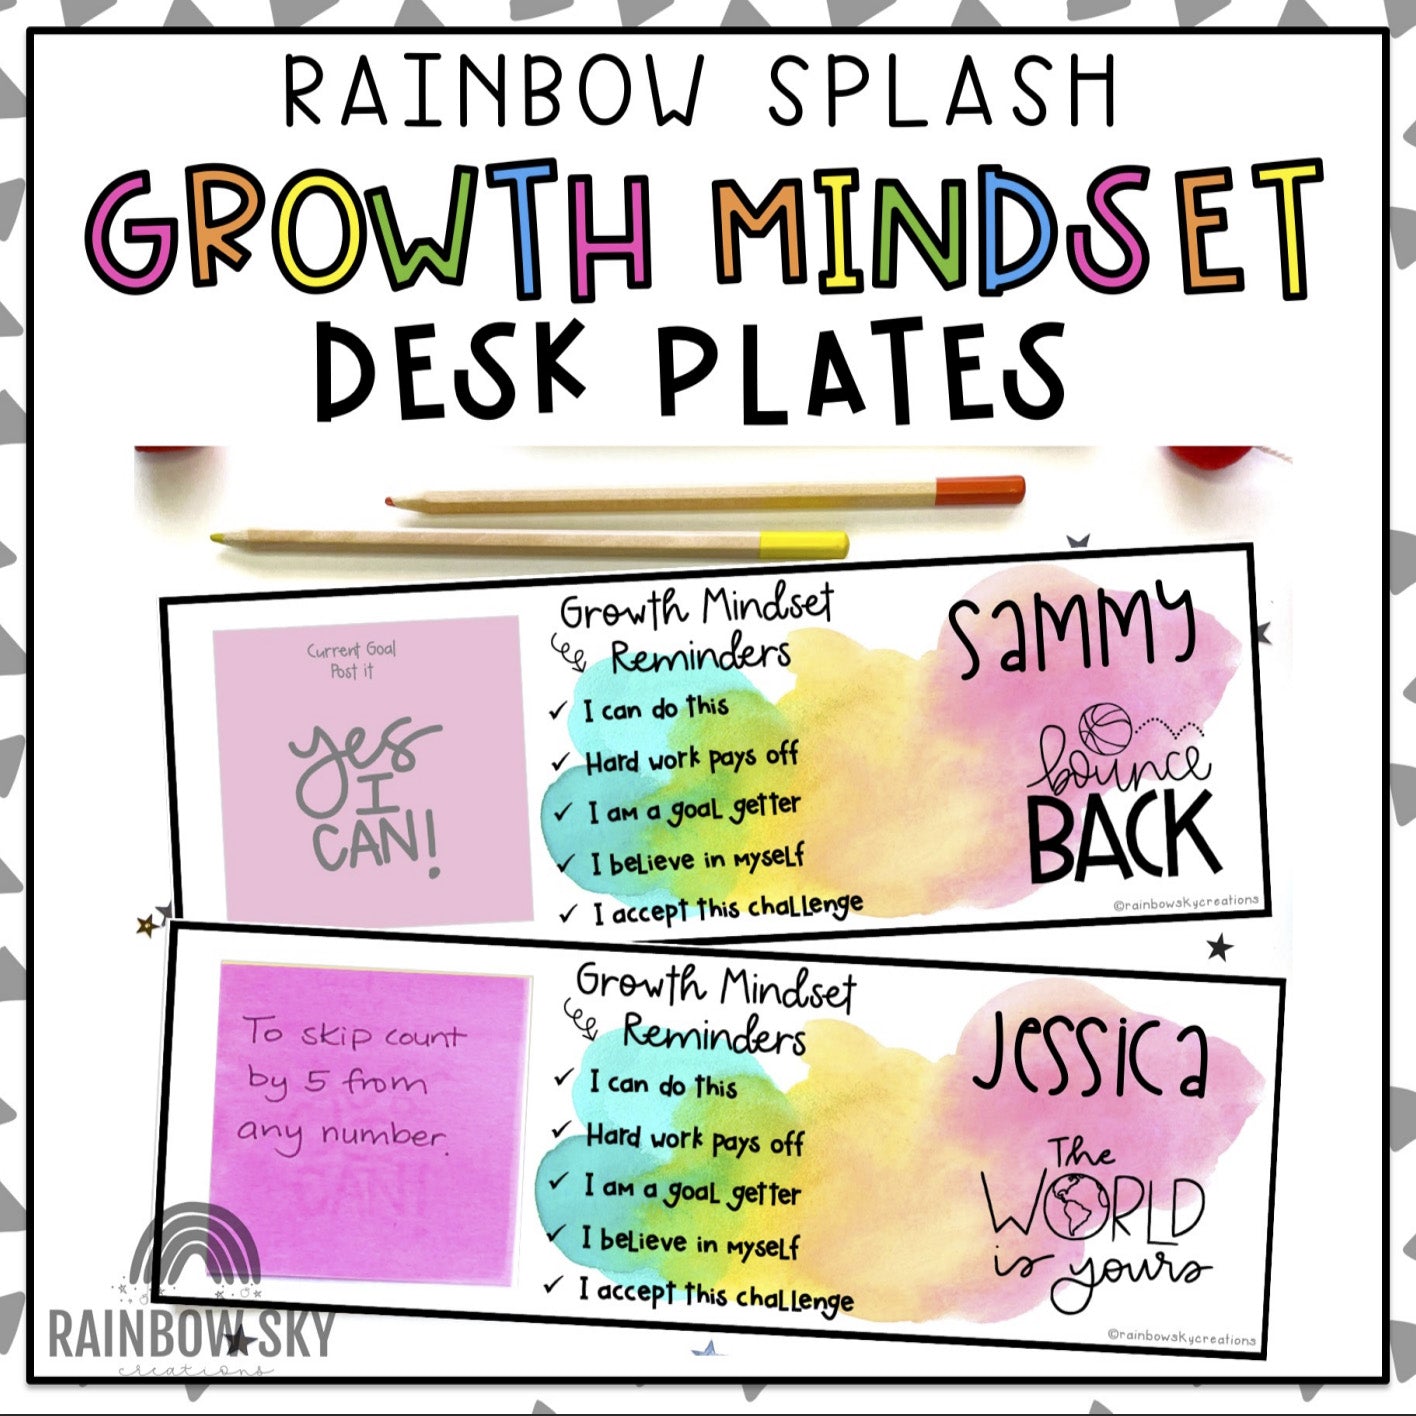 RAINBOW SPLASH
GROWTH MINDSET
DESK PLATES
Current Goal
Post it
yes
I
CAN!
Growth Mindset
Reminders
✓ I can do this
✓ Hard work pays off
✓ I am a goal getter
✓ I believe in myself
✓ I accept this challenge
Sammy
bounce
BACK
©rainbowskycreations
To skip count
by 5 from
any number.
Growth Mindset
Reminders
✓ I can do this
✓ Hard work pays off
✓ I am a goal getter
✓ I believe in myself
✓ I accept this challenge
Jessica
The
WORLD
is yours
©rainbowskycreations
RAINBOW SKY
creations